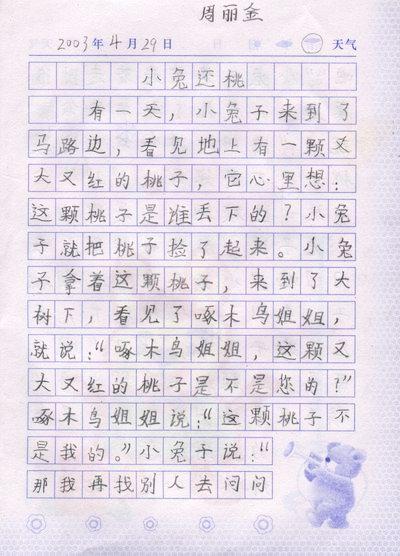 周丽金
2003年4月29日 天气
小兔还桃
有一天，小兔子来到了
马路边，看见地上有一颗又
大又红的桃子，它心里想：
这颗桃子是谁丢下的？小兔
子就把桃子捡了起来。小兔
子拿着这颗桃子，来到了大
树下，看见了啄木鸟姐姐，
就说：“啄木鸟姐姐，这颗又
大又红的桃子是不是您的？”
啄木鸟姐姐说：“这颗桃子不
是我的。”小兔子说：“
那我再找别人去问问